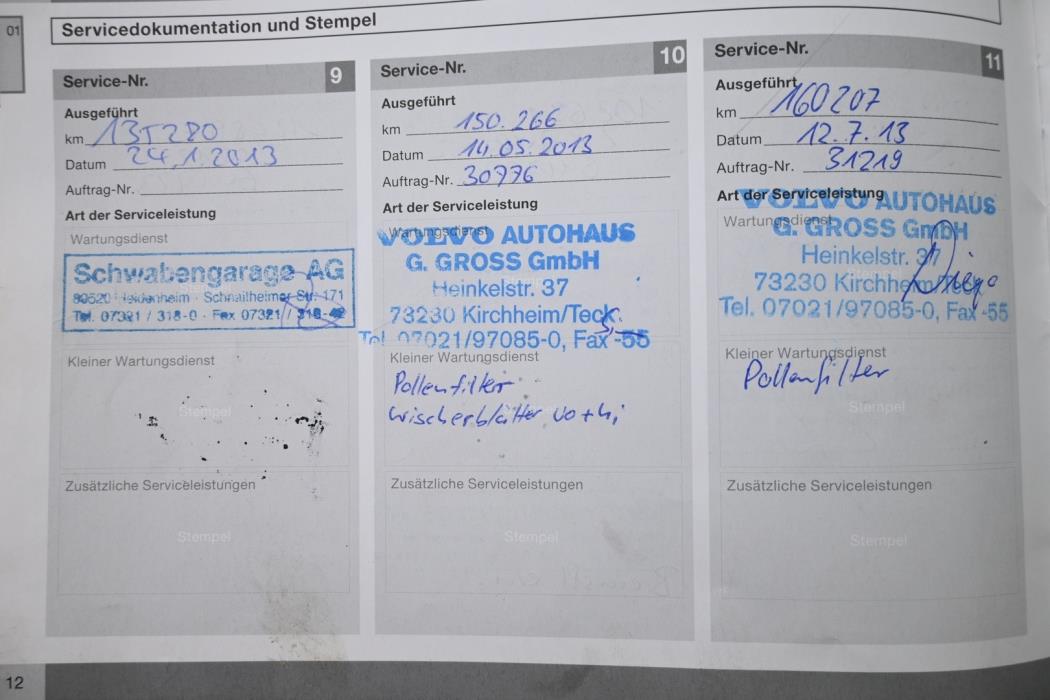 01
Servicedokumentation und Stempel
Service-Nr. 9
Ausgeführt
km 135280
Datum 24.1.2013
Auftrag-Nr.
Art der Serviceleistung
Wartungsdienst
Schwabengarage AG
89520 Heidenheim · Schnaitheimer Str. 171
Tel. 07321 / 318-0 · Fax 07321 / 318-42
Kleiner Wartungsdienst
Stempel
Zusätzliche Serviceleistungen
Stempel
Service-Nr. 10
Ausgeführt
km 150.266
Datum 14.05.2013
Auftrag-Nr. 30776
Art der Serviceleistung
Wartungsdienst
VOLVO AUTOHAUS
G. GROSS GmbH
Heinkelstr. 37
73230 Kirchheim/Teck
Tel. 07021/97085-0, Fax -55
Kleiner Wartungsdienst
Pollenfilter
Wischerblätter vo+hi
Zusätzliche Serviceleistungen
Stempel
Service-Nr. 11
Ausgeführt
km 160207
Datum 12.7.13
Auftrag-Nr. 31219
Art der Serviceleistung
Wartungsdienst
VOLVO AUTOHAUS
G. GROSS GmbH
Heinkelstr. 37
73230 Kirchheim/Teck
Tel. 07021/97085-0, Fax -55
Kleiner Wartungsdienst
Pollenfilter
Stempel
Zusätzliche Serviceleistungen
Stempel
12